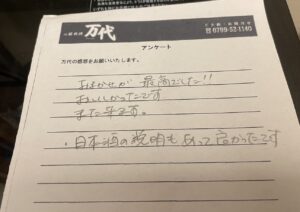 心・技・料理 万代
ご予約・お問合せ
☎0799-52-1140
アンケート
万代の感想をお願いいたします。
おまかせが 最高でした!!
おいしかったです
また来ます。
・日本酒の説明もあって良かったです